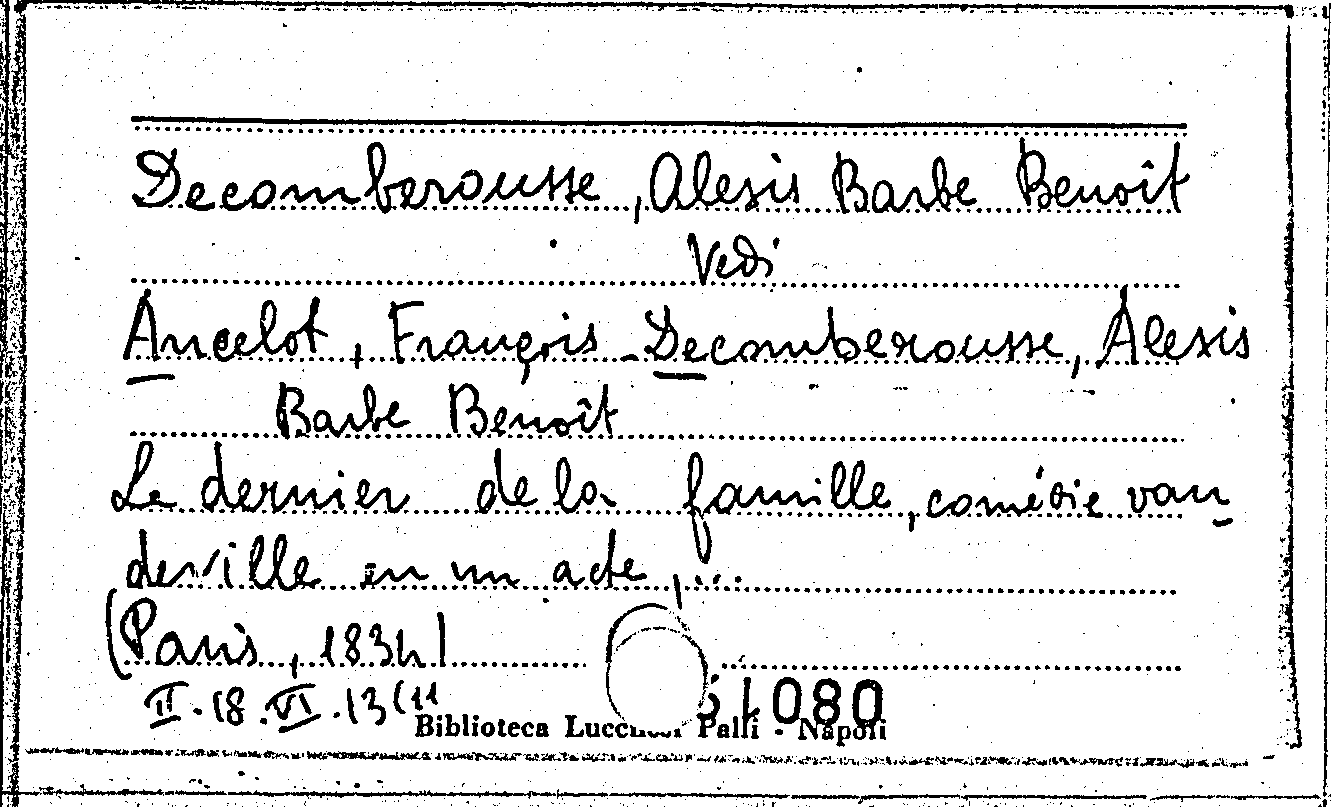 Decomberousse, Alexis Barbe Benoît
Vedi
Ancelot, François - Decomberousse, Alexis
Barbe Benoît
Le dernier de la famille, comédie vau
deville en un acte,...
(Paris, 1834)
II. 18. VI. 13(11
51080
Biblioteca Lucchesi Palli - Napoli